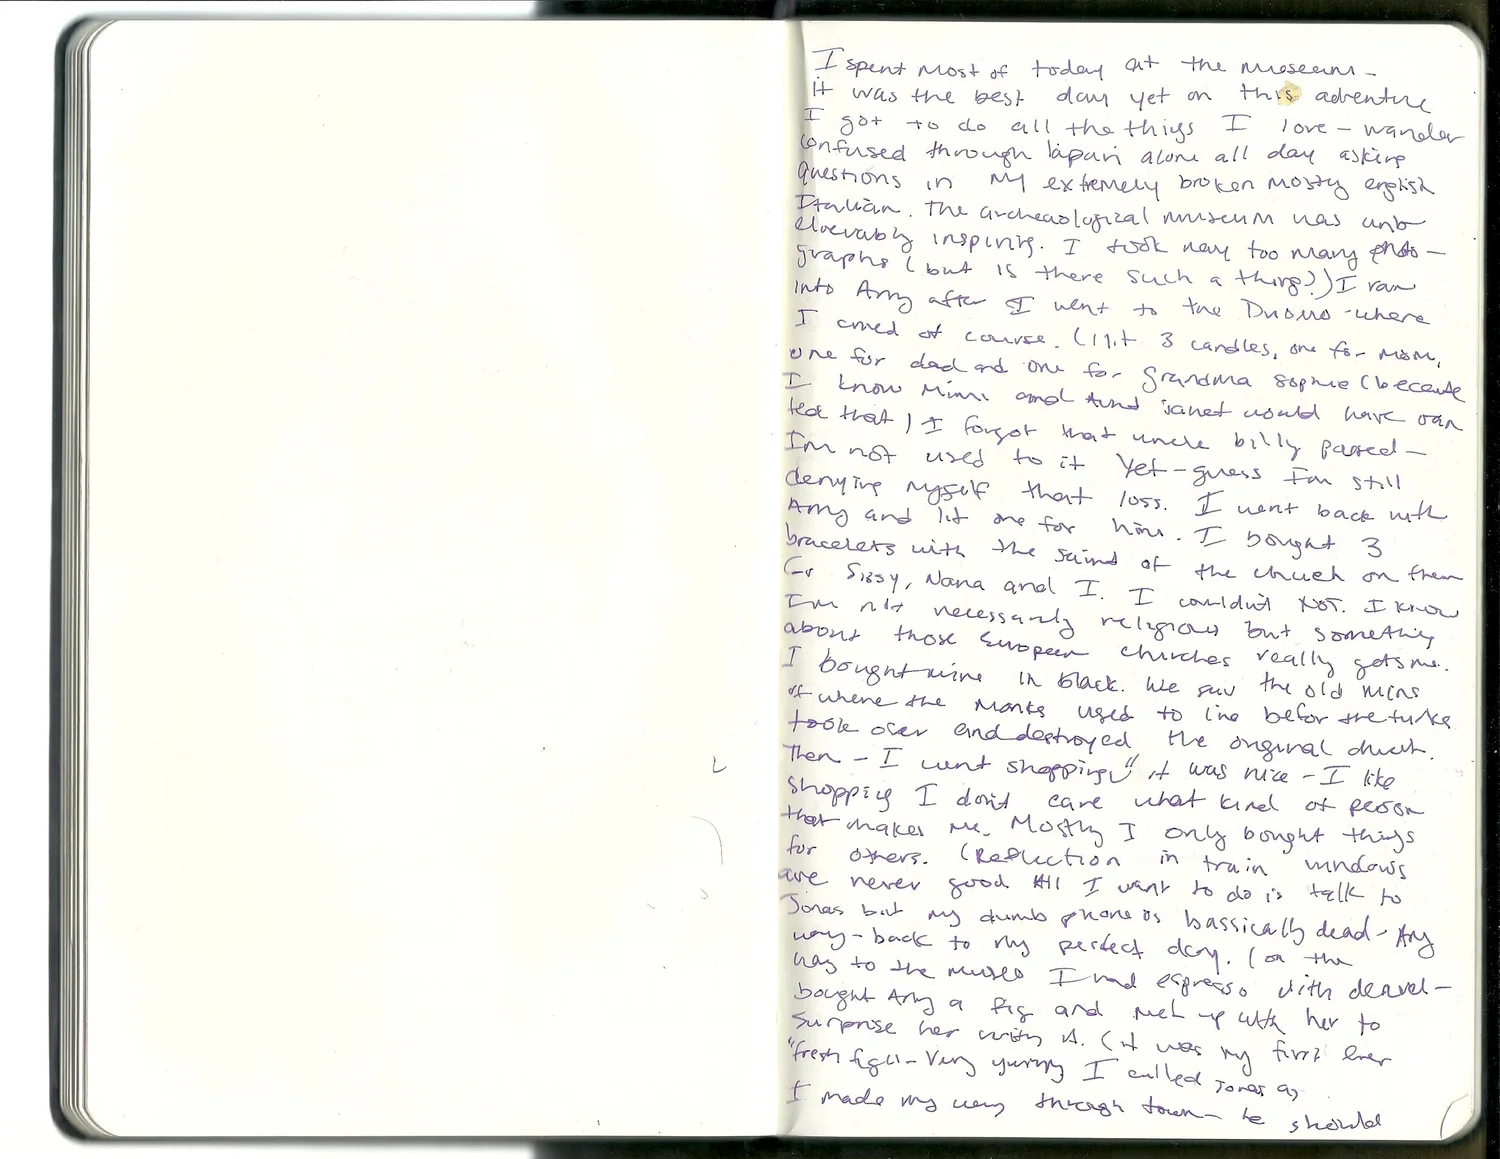 I spent most of today at the museum -
it was the best day yet on this adventure
I got to do all the things I love - wander
confused through lipari alone all day asking
questions in my extremely broken mostly english
Italian. The archeaological museum was unb
elievably inspiring. I took way too many photo -
graphs (but is there such a thing?) I ran
into Amy after I went to the Duomo - where
I cried of course. (lit 3 candles, one for mom,
one for dad and one for Grandma sophie (because
I know Mimi and Aunt janet would have wan
ted that) I forgot that uncle billy passed -
I'm not used to it yet - guess I'm still
denying myself that loss. I went back with
Amy and lit one for him. I bought 3
bracelets with the saint of the church on them
for Sissy, Nana and I. I couldn't NOT. I know
I'm not necessarily religious but something
about those European churches really gets me.
I bought mine in black. We saw the old ruins
of where the monks used to live befor the turks
took over and destroyed the original church.
Then - I went shopping it was nice - I like
shopping I don't care what kind of person
that makes me. Mostly I only bought things
for others. (Reflection in train windows
are never good All I want to do is talk to
Jonas but my dumb phone is bassically dead - Any
way - back to my perfect day. (on the
way to the museo I had espresso with
bought Amy a fig and met up with her to
surprise her with it. (it was my first ever
"fresh fig" - Very yummy I called Jonas as
I made my way through town - he should